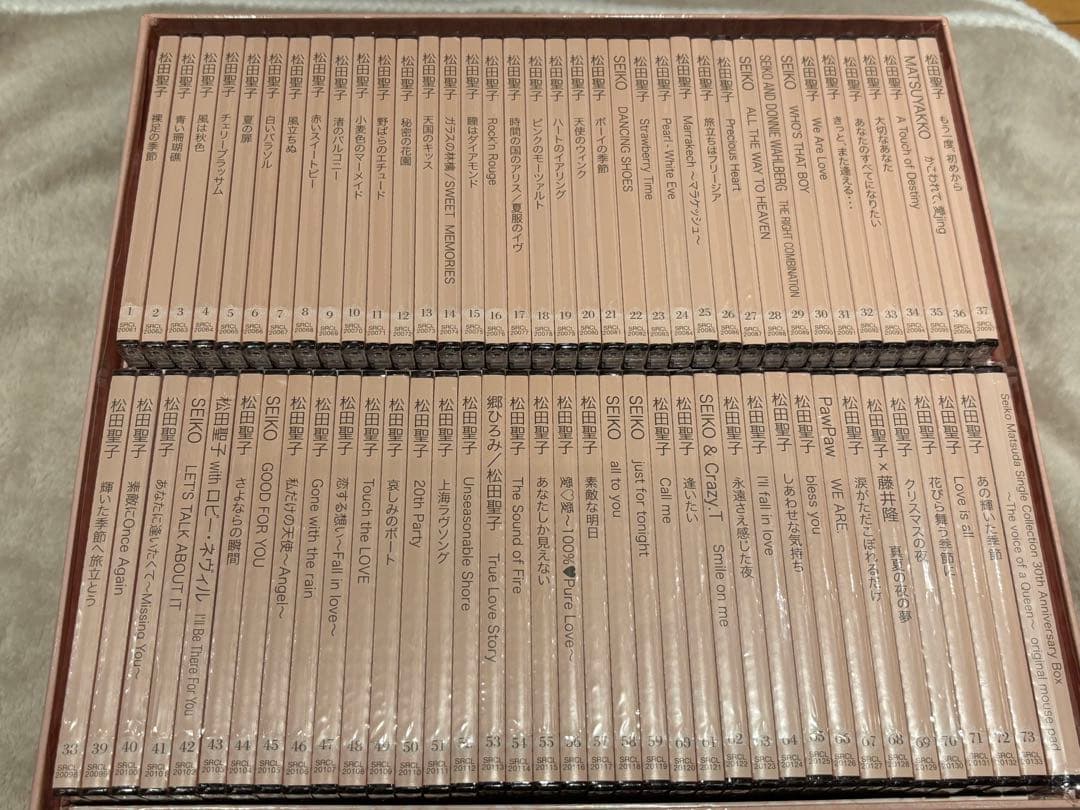 松田聖子 裸足の季節 1 SRCL 20061
松田聖子 青い珊瑚礁 2 SRCL 20062
松田聖子 風は秋色 3 SRCL 20063
松田聖子 チェリーブラッサム 4 SRCL 20064
松田聖子 夏の扉 5 SRCL 20065
松田聖子 白いパラソル 6 SRCL 20066
松田聖子 風立ちぬ 7 SRCL 20067
松田聖子 赤いスイートピー 8 SRCL 20068
松田聖子 渚のバルコニー 9 SRCL 20069
松田聖子 小麦色のマーメイド 10 SRCL 20070
松田聖子 野ばらのエチュード 11 SRCL 20071
松田聖子 秘密の花園 12 SRCL 20072
松田聖子 天国のキッス 13 SRCL 20073
松田聖子 ガラスの林檎/SWEET MEMORIES 14 SRCL 20074
松田聖子 瞳はダイアモンド 15 SRCL 20075
松田聖子 Rock'n Rouge 16 SRCL 20076
松田聖子 時間の国のアリス/夏服のイヴ 17 SRCL 20077
松田聖子 ピンクのモーツァルト 18 SRCL 20078
松田聖子 ハートのイアリング 19 SRCL 20079
松田聖子 天使のウィンク 20 SRCL 20080
松田聖子 ボーイの季節 21 SRCL 20081
SEIKO DANCING SHOES 22 SRCL 20082
松田聖子 Strawberry Time 23 SRCL 20083
松田聖子 Pearl-White Eve 24 SRCL 20084
松田聖子 Marrakech～マラケッシュ～ 25 SRCL 20085
松田聖子 旅立ちはフリージア 26 SRCL 20086
松田聖子 Precious Heart 27 SRCL 20087
SEIKO ALL THE WAY TO HEAVEN 28 SRCL 20088
SEIKO AND DONNIE WAHLBERG THE RIGHT COMBINATION 29 SRCL 20089
SEIKO WHO'S THAT BOY 30 SRCL 20090
松田聖子 We Are Love 31 SRCL 20091
松田聖子 きっと、また逢える… 32 SRCL 20092
松田聖子 あなたのすべてになりたい 33 SRCL 20093
松田聖子 大切なあなた 34 SRCL 20094
松田聖子 A Touch of Destiny 35 SRCL 20095
MATSUYAKKO かこわれて、愛jing 36 SRCL 20096
松田聖子 もう一度、初めから 37 SRCL 20097
松田聖子 輝いた季節へ旅立とう 38 SRCL 20098
松田聖子 素敵にOnce Again 39 SRCL 20099
松田聖子 あなたに逢いたくて～Missing You～ 40 SRCL 20100
SEIKO LET'S TALK ABOUT IT 41 SRCL 20101
松田聖子 with ロビー・ネヴィル I'll Be There For You 42 SRCL 20102
松田聖子 さよならの瞬間 43 SRCL 20103
SEIKO GOOD FOR YOU 44 SRCL 20104
松田聖子 私だけの天使～Angel～ 45 SRCL 20105
松田聖子 Gone with the rain 46 SRCL 20106
松田聖子 恋する想い～Fall in love～ 47 SRCL 20107
松田聖子 Touch the LOVE 48 SRCL 20108
松田聖子 哀しみのボート 49 SRCL 20109
松田聖子 20th Party 50 SRCL 20110
松田聖子 上海ラヴソング 51 SRCL 20111
松田聖子 Unseasonable Shore 52 SRCL 20112
郷ひろみ/松田聖子 True Love Story 53 SRCL 20113
松田聖子 The Sound of Fire 54 SRCL 20114
松田聖子 あなたしか見えない 55 SRCL 20115
松田聖子 愛♡愛～100%♥Pure Love～ 56 SRCL 20116
松田聖子 素敵な明日 57 SRCL 20117
SEIKO all to you 58 SRCL 20118
SEIKO just for tonight 59 SRCL 20119
松田聖子 Call me 60 SRCL 20120
松田聖子 逢いたい 61 SRCL 20121
SEIKO & Crazy.T Smile on me 62 SRCL 20122
松田聖子 永遠さえ感じた夜 63 SRCL 20123
松田聖子 I'll fall in love 64 SRCL 20124
松田聖子 しあわせな気持ち 65 SRCL 20125
松田聖子 bless you 66 SRCL 20126
PawPaw WE ARE. 67 SRCL 20127
松田聖子 涙がただこぼれるだけ 68 SRCL 20128
松田聖子×藤井隆 真夏の夜の夢 69 SRCL 20129
松田聖子 クリスマスの夜 70 SRCL 20130
松田聖子 花びら舞う季節に 71 SRCL 20131
松田聖子 Love is all 72 SRCL 20132
松田聖子 あの輝いた季節 73 SRCL 20133
Seiko Matsuda Single Collection 30th Anniversary Box
～The voice of a Queen～ original mouse pad